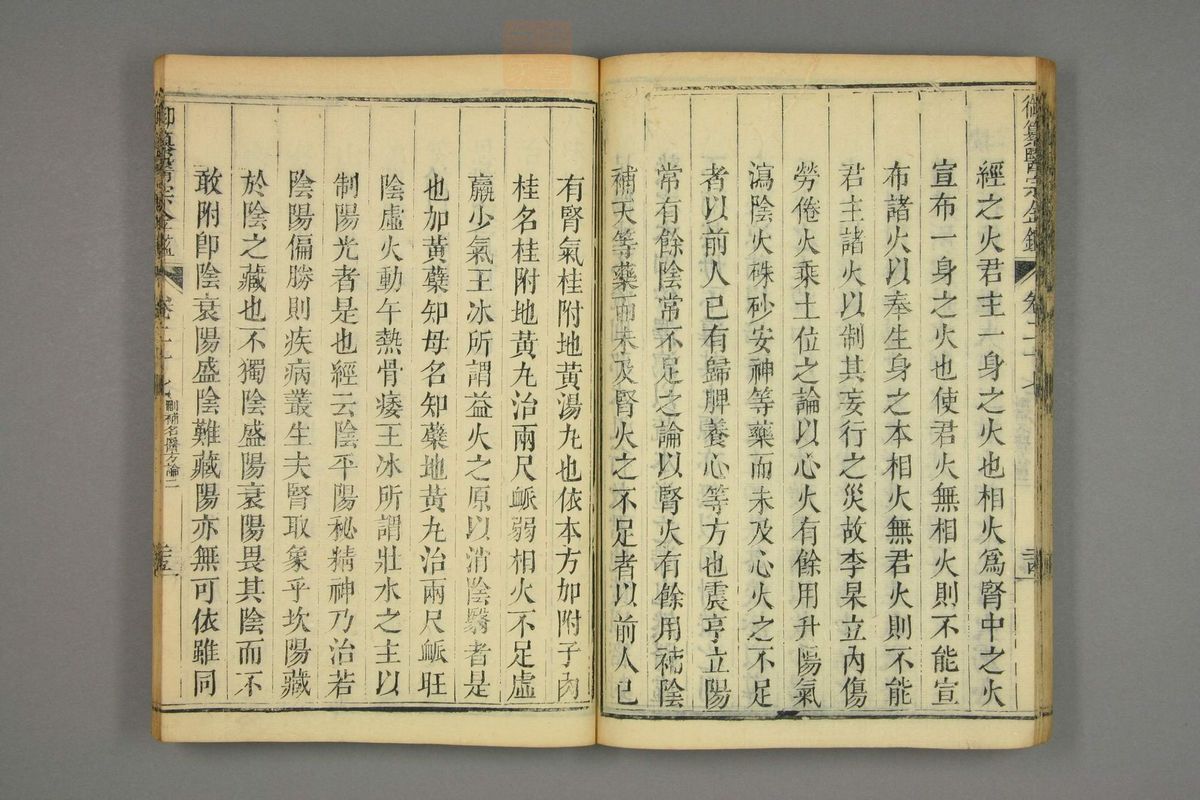 御纂醫宗金鑑 卷二十七
經之火君主一身之火也相火爲腎中之火
宣布一身之火也使君火無相火則不能宣
布諸火以奉生身之本相火無君火則不能
君主諸火以制其妄行之災故李杲立內傷
勞倦火乘土位之論以心火有餘用升陽氣
瀉陰火硃砂安神等藥而未及心火之不足
者以前人已有歸脾養心等方也震亨立陽
常有餘陰常不足之論以腎火有餘用補陰
補天等藥而未及腎火之不足者以前人已
有腎氣桂附地黃湯丸也依本方加附子肉
桂名桂附地黃丸治兩尺䘑弱相火不足虛
羸少氣王冰所謂益火之原以消陰翳者是
也加黃蘗知母名知蘗地黃丸治兩尺䘑旺
陰虛火動午熱骨痿王冰所謂壯水之主以
制陽光者是也經云陰平陽秘精神乃治若
陰陽偏勝則疾病叢生夫腎取象乎坎陽藏
於陰之藏也不獨陰盛陽衰陽畏其陰而不
敢附卽陰衰陽盛陰難藏陽亦無可依雖同
御纂醫宗金鑑 卷二十七 刪補名醫方論二